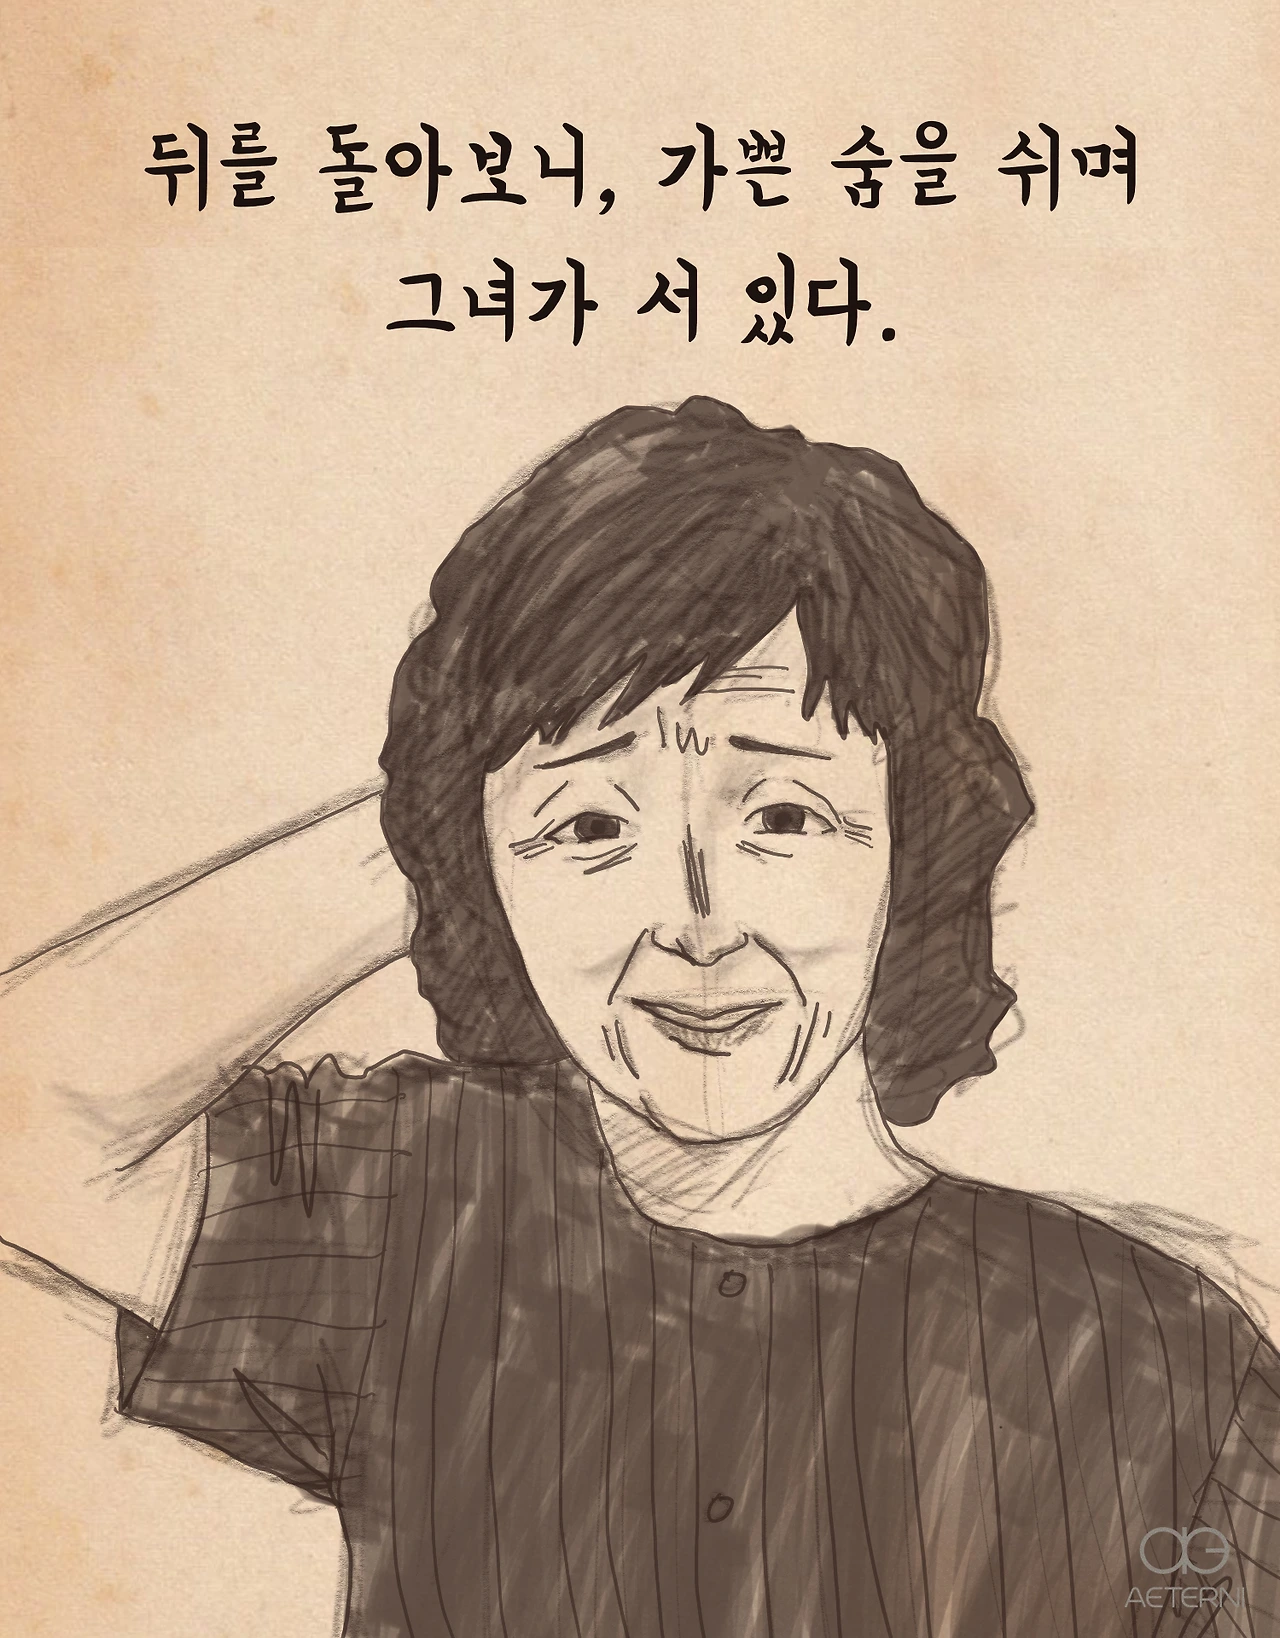 뒤를 돌아보니, 가쁜 숨을 쉬며
그녀가 서 있다.
AETERNI